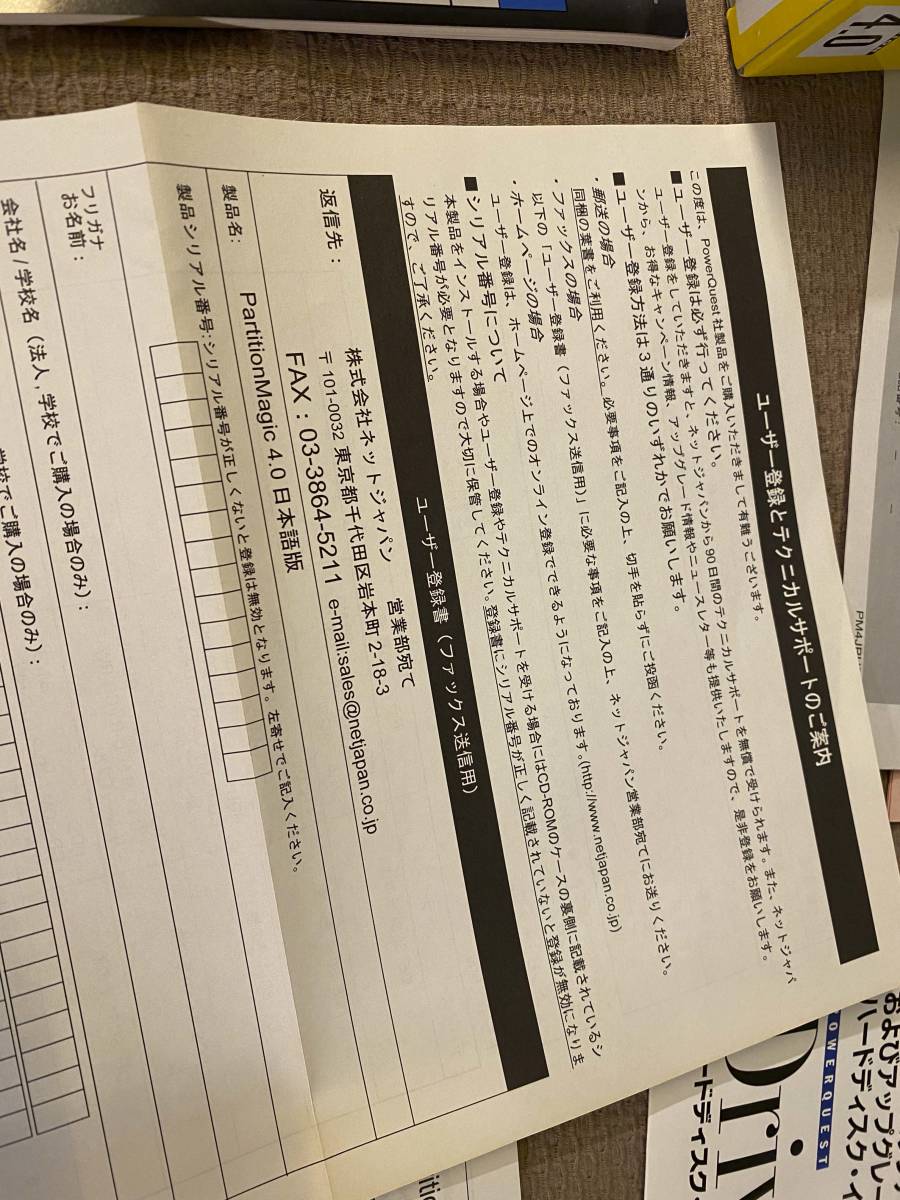 ユーザー登録とテクニカルサポートのご案内
この度は、PowerQuest社製品をご購入いただきまして有難うございます。
■ユーザー登録は必ず行ってください。
ユーザー登録をしていただきますと、ネットジャパンから90日間のテクニカルサポートを無償で受けられます。また、ネットジャパ
ンから、お得なキャンペーン情報、アップグレード情報やニュースレター等も提供いたしますので、是非登録をお願いします。
■ユーザー登録方法は3通りのいずれかでお願いします。
・郵送の場合
同梱の葉書をご利用ください。必要事項をご記入の上、切手を貼らずにご投函ください。
・ファックスの場合
以下の「ユーザー登録書（ファックス送信用）」に必要な事項をご記入の上、ネットジャパン営業部宛てにお送りください。
・ホームページの場合
ユーザー登録は、ホームページ上でのオンライン登録でできるようになっております。(http://www.netjapan.co.jp)
■シリアル番号について
本製品をインストールする場合やユーザー登録やテクニカルサポートを受ける場合にはCD-ROMのケースの裏側に記載されているシ
リアル番号が必要となりますので大切に保管してください。登録書にシリアル番号が正しく記載されていないと登録が無効になりま
すので、ご了承ください。
ユーザー登録書（ファックス送信用）
返信先：
株式会社ネットジャパン 営業部宛て
〒101-0032 東京都千代田区岩本町2-18-3
FAX：03-3864-5211 e-mail:sales@netjapan.co.jp
製品名: PartitionMagic 4.0 日本語版
製品シリアル番号:シリアル番号が正しくないと登録は無効となります。左寄せでご記入ください。
フリガナ
お名前：
会社名/学校名（法人,学校でご購入の場合のみ）：
学校でご購入の場合のみ）：
4.0
PM4JP
POWERQUEST
Driv
ードディスク・
およびアップグレ
ハードディスク・イ